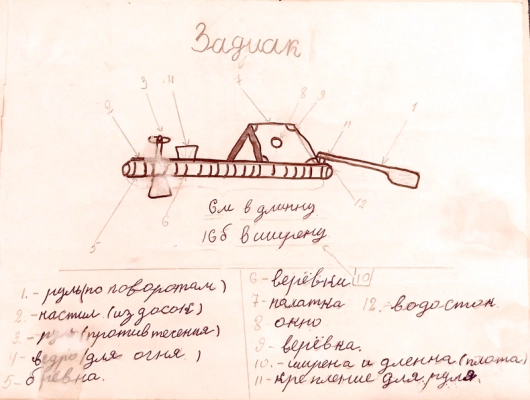 Задиак
3 11 7 8 9 11 1
2
5 6 12
6м в длинну
16б в ширену
1.- руль(по поворотам)
2.- настил (из досок)
3.- руль (против течения)
11- ведро (для огня)
5- брёвна.
6- верёвки 10
7- палатка 12.- водосток
8 окно
9- верёвка.
10.- ширена и дленна (плота)
11- крепление для руля.